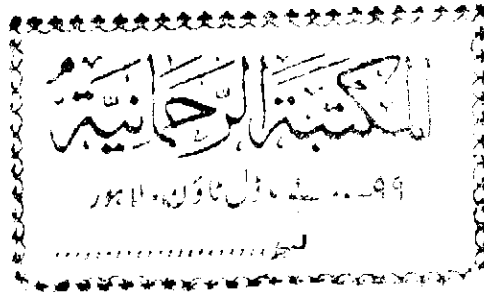 المكتبة الرحمانية
۹۹... ماڈل ٹاؤن، لاہور
نمبر....................